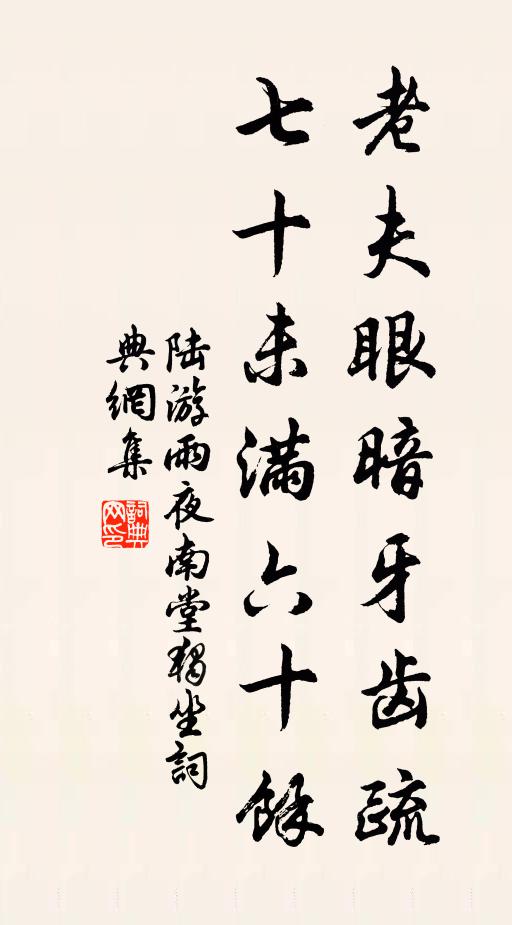 老夫眼暗牙齿疏
七十未满六十餘
陆游雨夜南堂獨坐詞
典網集
詞典网印